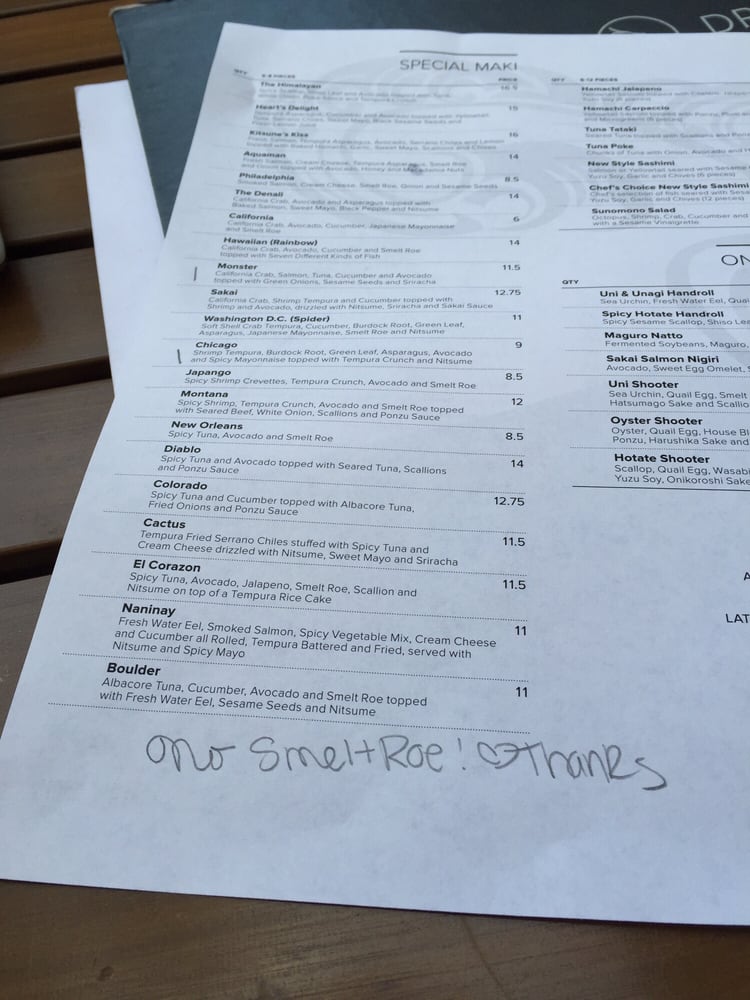 DR
SPECIAL MAKI
QTY 6-8 PIECES PRICE
The Himalayan 16.5
Heart's Delight 15
Kitsune's Kiss 16
Fresh Salmon, Tempura Asparagus, Avocado, Serrano Chiles and Lemon
topped with Baked Hamachi, Garlic, Sweet Mayo, Scallions and Chives
Aquaman 14
Fresh Salmon, Cream Cheese, Tempura Asparagus, Smelt Roe
topped with Avocado, Honey and Macadamia Nuts
Philadelphia 8.5
Smoked Salmon, Cream Cheese, Smelt Roe, Onion and Sesame Seeds
The Denali 14
California Crab, Avocado and Asparagus topped with
Baked Salmon, Sweet Mayo, Black Pepper and Nitsume
California 6
California Crab, Avocado, Cucumber, Japanese Mayonnaise
and Smelt Roe
Hawaiian (Rainbow) 14
California Crab, Avocado, Cucumber and Smelt Roe
topped with Seven Different Kinds of Fish
Monster 11.5
California Crab, Salmon, Tuna, Cucumber and Avocado
topped with Green Onions, Sesame Seeds and Sriracha
Sakai 12.75
California Crab, Shrimp Tempura and Cucumber topped with
Shrimp and Avocado, drizzled with Nitsume, Sriracha and Sakai Sauce
Washington D.C. (Spider) 11
Soft Shell Crab Tempura, Cucumber, Burdock Root, Green Leaf,
Asparagus, Japanese Mayonnaise, Smelt Roe and Nitsume
Chicago 9
Shrimp Tempura, Burdock Root, Green Leaf, Asparagus, Avocado
and Spicy Mayonnaise topped with Tempura Crunch and Nitsume
Japango 8.5
Spicy Shrimp Crevettes, Tempura Crunch, Avocado and Smelt Roe
Montana 12
Spicy Shrimp, Tempura Crunch, Avocado and Smelt Roe topped
with Seared Beef, White Onion, Scallions and Ponzu Sauce
New Orleans 8.5
Spicy Tuna, Avocado and Smelt Roe
Diablo 14
Spicy Tuna and Avocado topped with Seared Tuna, Scallions
and Ponzu Sauce
Colorado 12.75
Spicy Tuna and Cucumber topped with Albacore Tuna,
Fried Onions and Ponzu Sauce
Cactus 11.5
Tempura Fried Serrano Chiles stuffed with Spicy Tuna and
Cream Cheese drizzled with Nitsume, Sweet Mayo and Sriracha
El Corazon 11.5
Spicy Tuna, Avocado, Jalapeno, Smelt Roe, Scallion and
Nitsume on top of a Tempura Rice Cake
Naninay 11
Fresh Water Eel, Smoked Salmon, Spicy Vegetable Mix, Cream Cheese
and Cucumber all Rolled, Tempura Battered and Fried, served with
Nitsume and Spicy Mayo
Boulder 11
Albacore Tuna, Cucumber, Avocado and Smelt Roe topped
with Fresh Water Eel, Sesame Seeds and Nitsume
No Smelt Roe! Thanks
QTY 6-12 PIECES
Hamachi Jalapeno
Yuzu Soy (6 pieces)
Hamachi Carpaccio
Tuna Tataki
Seared Tuna topped with Scallions and Pon
Tuna Poke
Chunks of Tuna with Onion, Avocado and H
New Style Sashimi
Salmon or Yellowtail seared with Sesame
Yuzu Soy, Garlic and Chives (6 pieces)
Chef's Choice New Style Sashimi
Chef's selection of fish seared with Sesa
Yuzu Soy, Garlic and Chives (12 pieces)
Sunomono Salad
Octopus, Shrimp, Crab, Cucumber and
with a Sesame Vinaigrette
ON
QTY
Uni & Unagi Handroll
Sea Urchin, Fresh Water Eel, Quai
Spicy Hotate Handroll
Spicy Sesame Scallop, Shiso Le
Maguro Natto
Fermented Soybeans, Maguro,
Sakai Salmon Nigiri
Avocado, Sweet Egg Omelet, S
Uni Shooter
Sea Urchin, Quail Egg, Smelt
Hatsumago Sake and Scallio
Oyster Shooter
Oyster, Quail Egg, House Bl
Ponzu, Harushika Sake and
Hotate Shooter
Scallop, Quail Egg, Wasabi
Yuzu Soy, Onikoroshi Sake
A
LAT